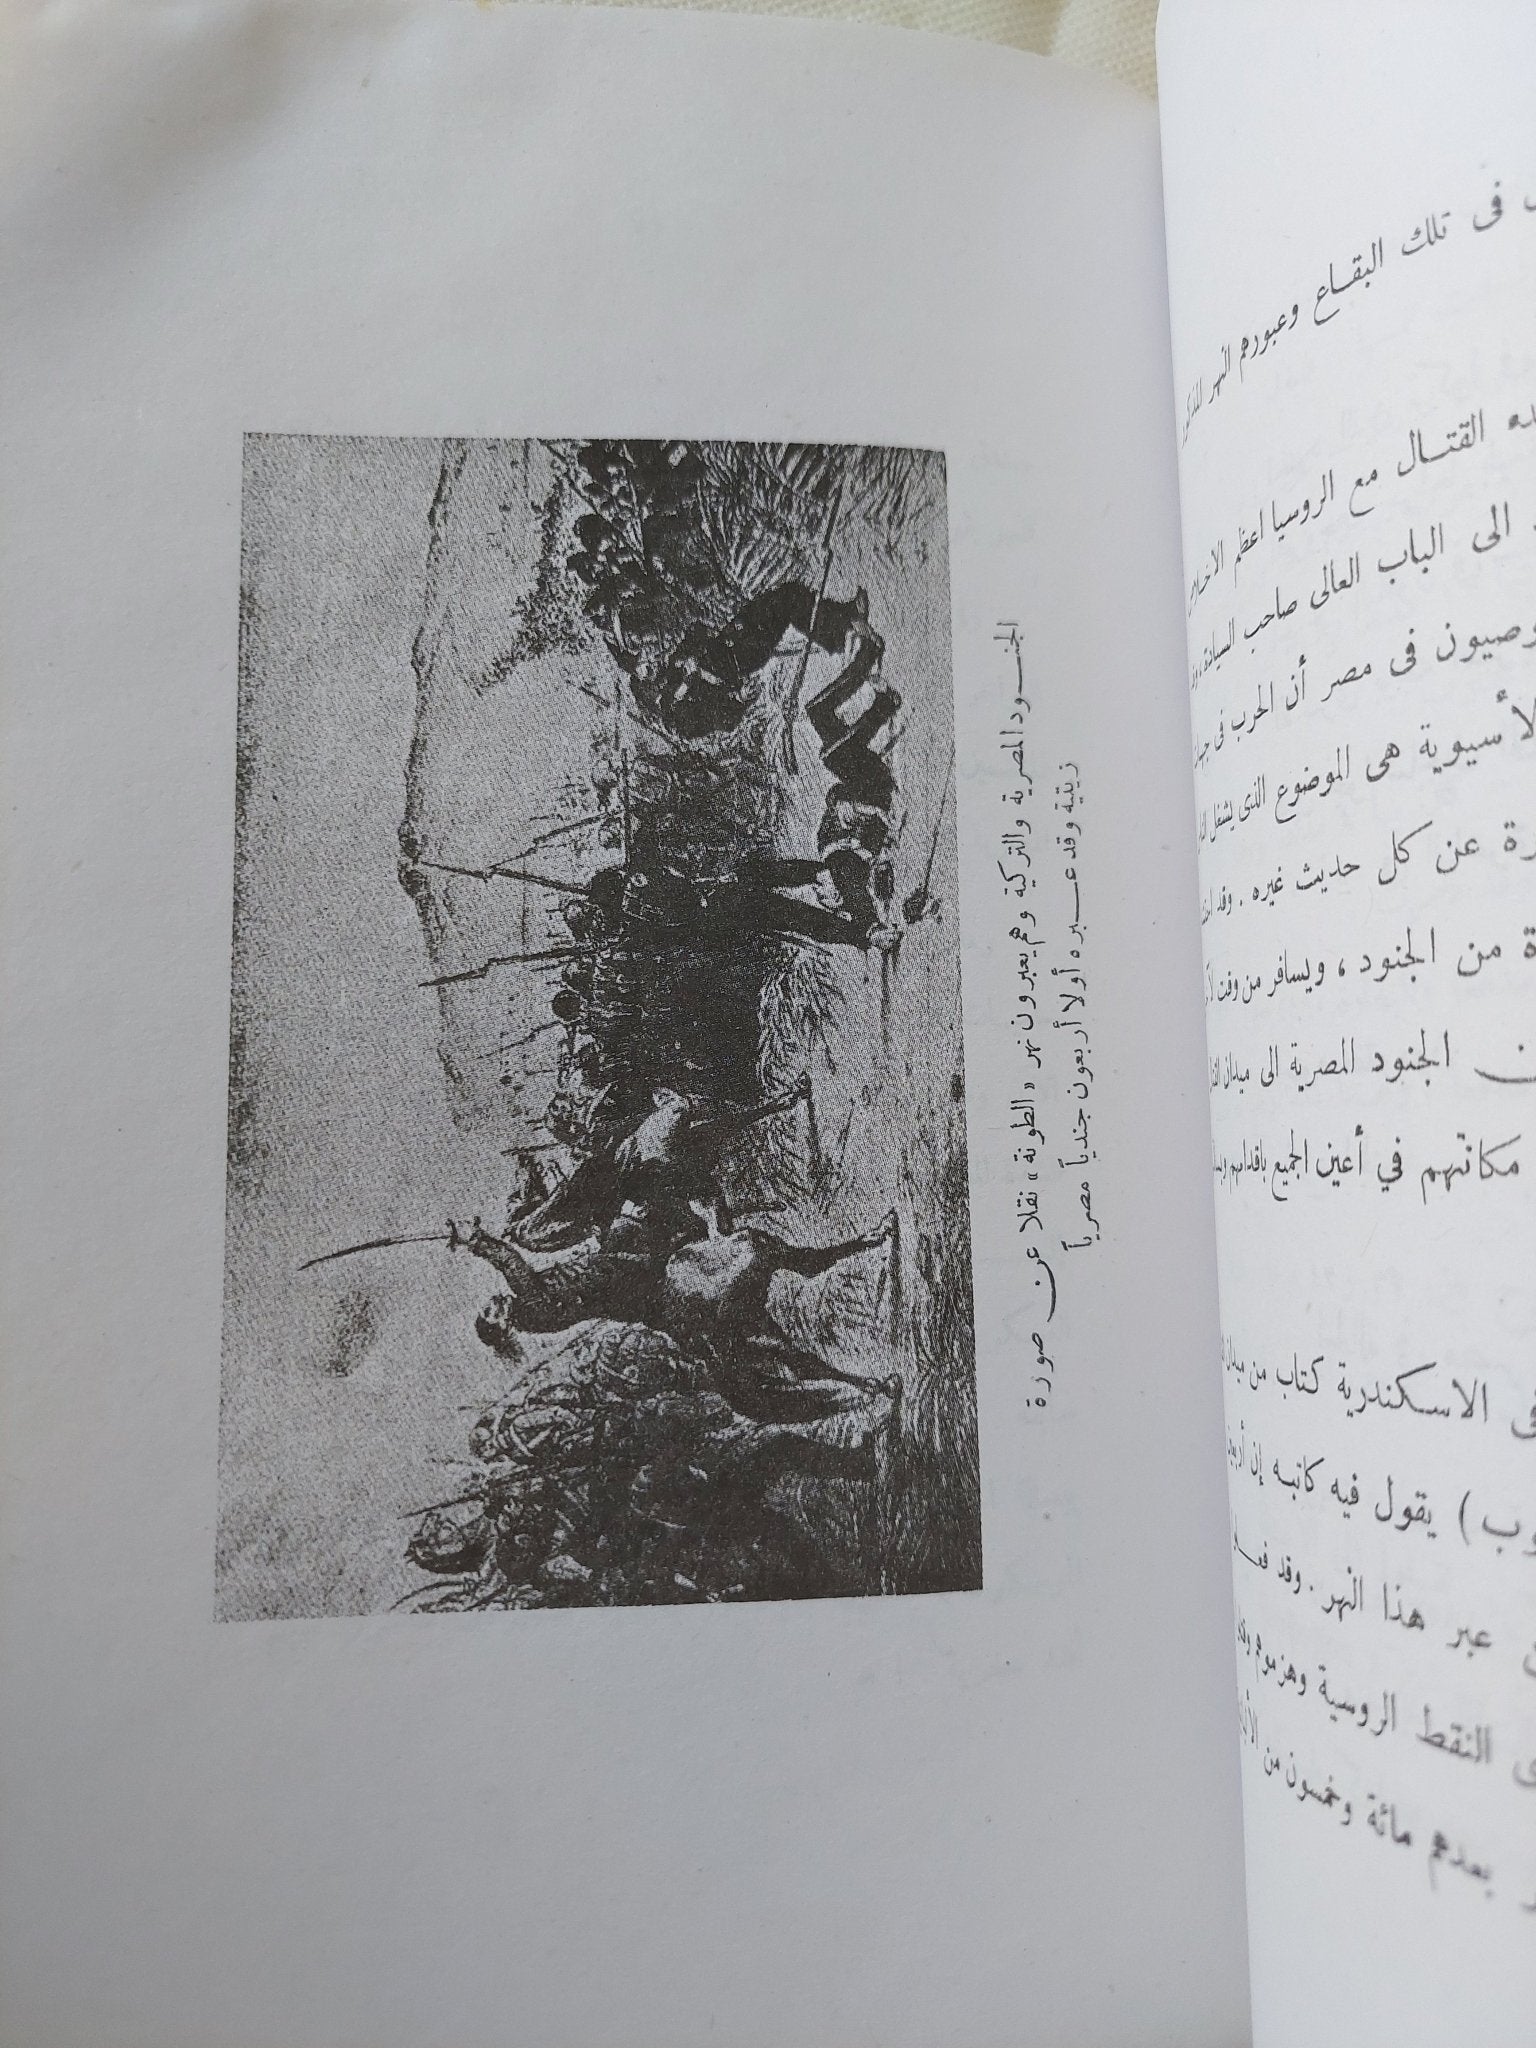 الجنود المصرية والتركية وهم يعبرون نهر «الطونة» نقلا عن صورة
زيتية وقد عبره أولا أربعون جندياً مصرياً
فى تلك البقاع وعبورهم النهر
القتال مع الروسيا اعظم
الى الباب العالى صاحب السيادة
فى مصر أن الحرب فى
هى الموضوع الذى يشغل
عن كل حديث غيره . وقد
من الجنود ، ويسافر من وقت
الجنود المصرية الى ميدان
مكانهم في أعين الجميع باقدامهم
الاسكندرية كتاب من ميدان
) يقول فيه كاتبه إن
عبر هذا النهر . وقد
النقط الروسية وهزموهم
بعدهم مائة وخمسون من